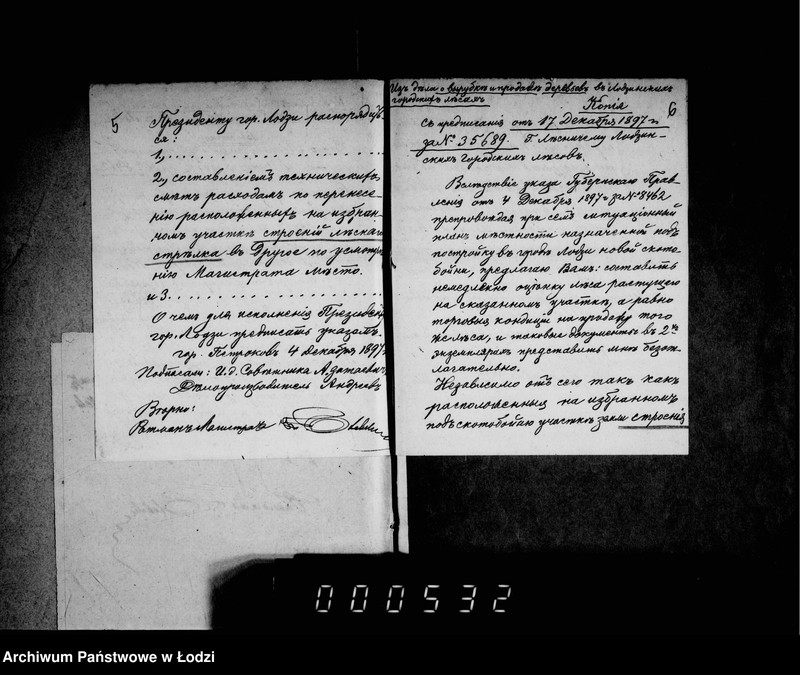 5
Президенту гор. Лодзи распорядить-
ся:
1, . . . . . . . . . . . . . . . . . .
2, составленіемъ техническихъ
смѣтъ расходамъ по перенесе-
нію расположенныхъ на избран-
номъ участкѣ строеній лѣснаго
стрѣлка въ другое по усмотрѣ-
нію Магистрата мѣсто.
и 3. . . . . . . . . . . . . . . . . .
О чемъ для исполненія Президенту
гор. Лодзи предписать указомъ.
гор. Петроковъ 4 Декабря 1897 г.
Подписали: И. д. Совѣтника
Дѣлопроизводитель Андреевъ
Вѣрно:
Ратманъ Магистрата
Изъ дѣла о вырубкѣ и продажѣ деревьевъ въ Лодзинскихъ
городскихъ лѣсахъ
Копія
6
съ предписанія отъ 17 Декабря 1897 г.
за № 35689. Г. Лѣсничему Лодзин-
скихъ городскихъ лѣсовъ.
Вслѣдствіе указа Губернскаго Прав-
ленія отъ 4 Декабря 1897 г. за № 8462
препровождая при семъ ситуаціонный
планъ мѣстности назначенной подъ
постройку въ городѣ Лодзи новой ското-
бойни, предлагаю Вамъ: составить
немедленно оцѣнку лѣса растущего
на сказанномъ участкѣ, а равно
торговыя кондиціи на продажу того
же лѣса, и таковые документы въ 2-хъ
экземплярахъ представить мнѣ безот-
лагательно.
Независимо отъ сего такъ какъ
расположенныя на избранномъ
подъ скотобойню участкѣ земли строенія
000532
Archiwum Państwowe w Łodzi